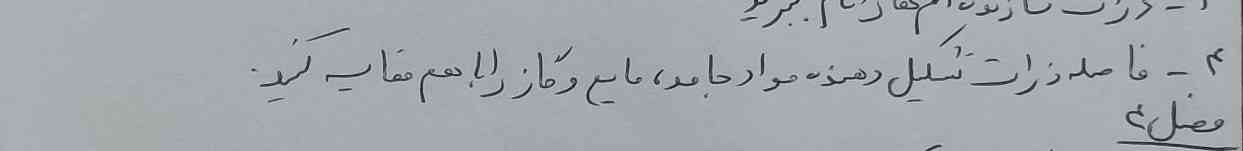 ۱- ذرات سازنده اتم ها را نام ببرید
۲- فاصله ذرات تشکیل دهنده مواد جامد، مایع و گاز را با هم مقایسه کنید.
فصل ۲